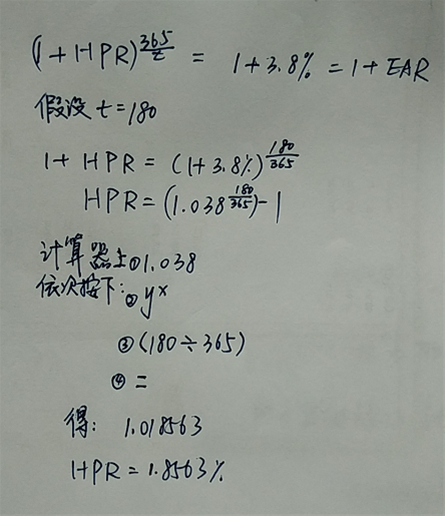 (1+HPR)^(365/t) = 1+3.8% = 1+EAR
假设 t=180
1+ HPR = (1+3.8%)^(180/365)
HPR = (1.038^(180/365)) - 1
计算器上①1.038
依次按下:②y^x
③(180÷365)
④ =
得: 1.018563
HPR = 1.8563%